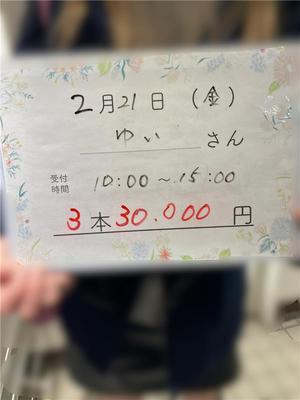 2月21日（金）
ゆいさん
受付時間 10:00～15:00
3本30.000円